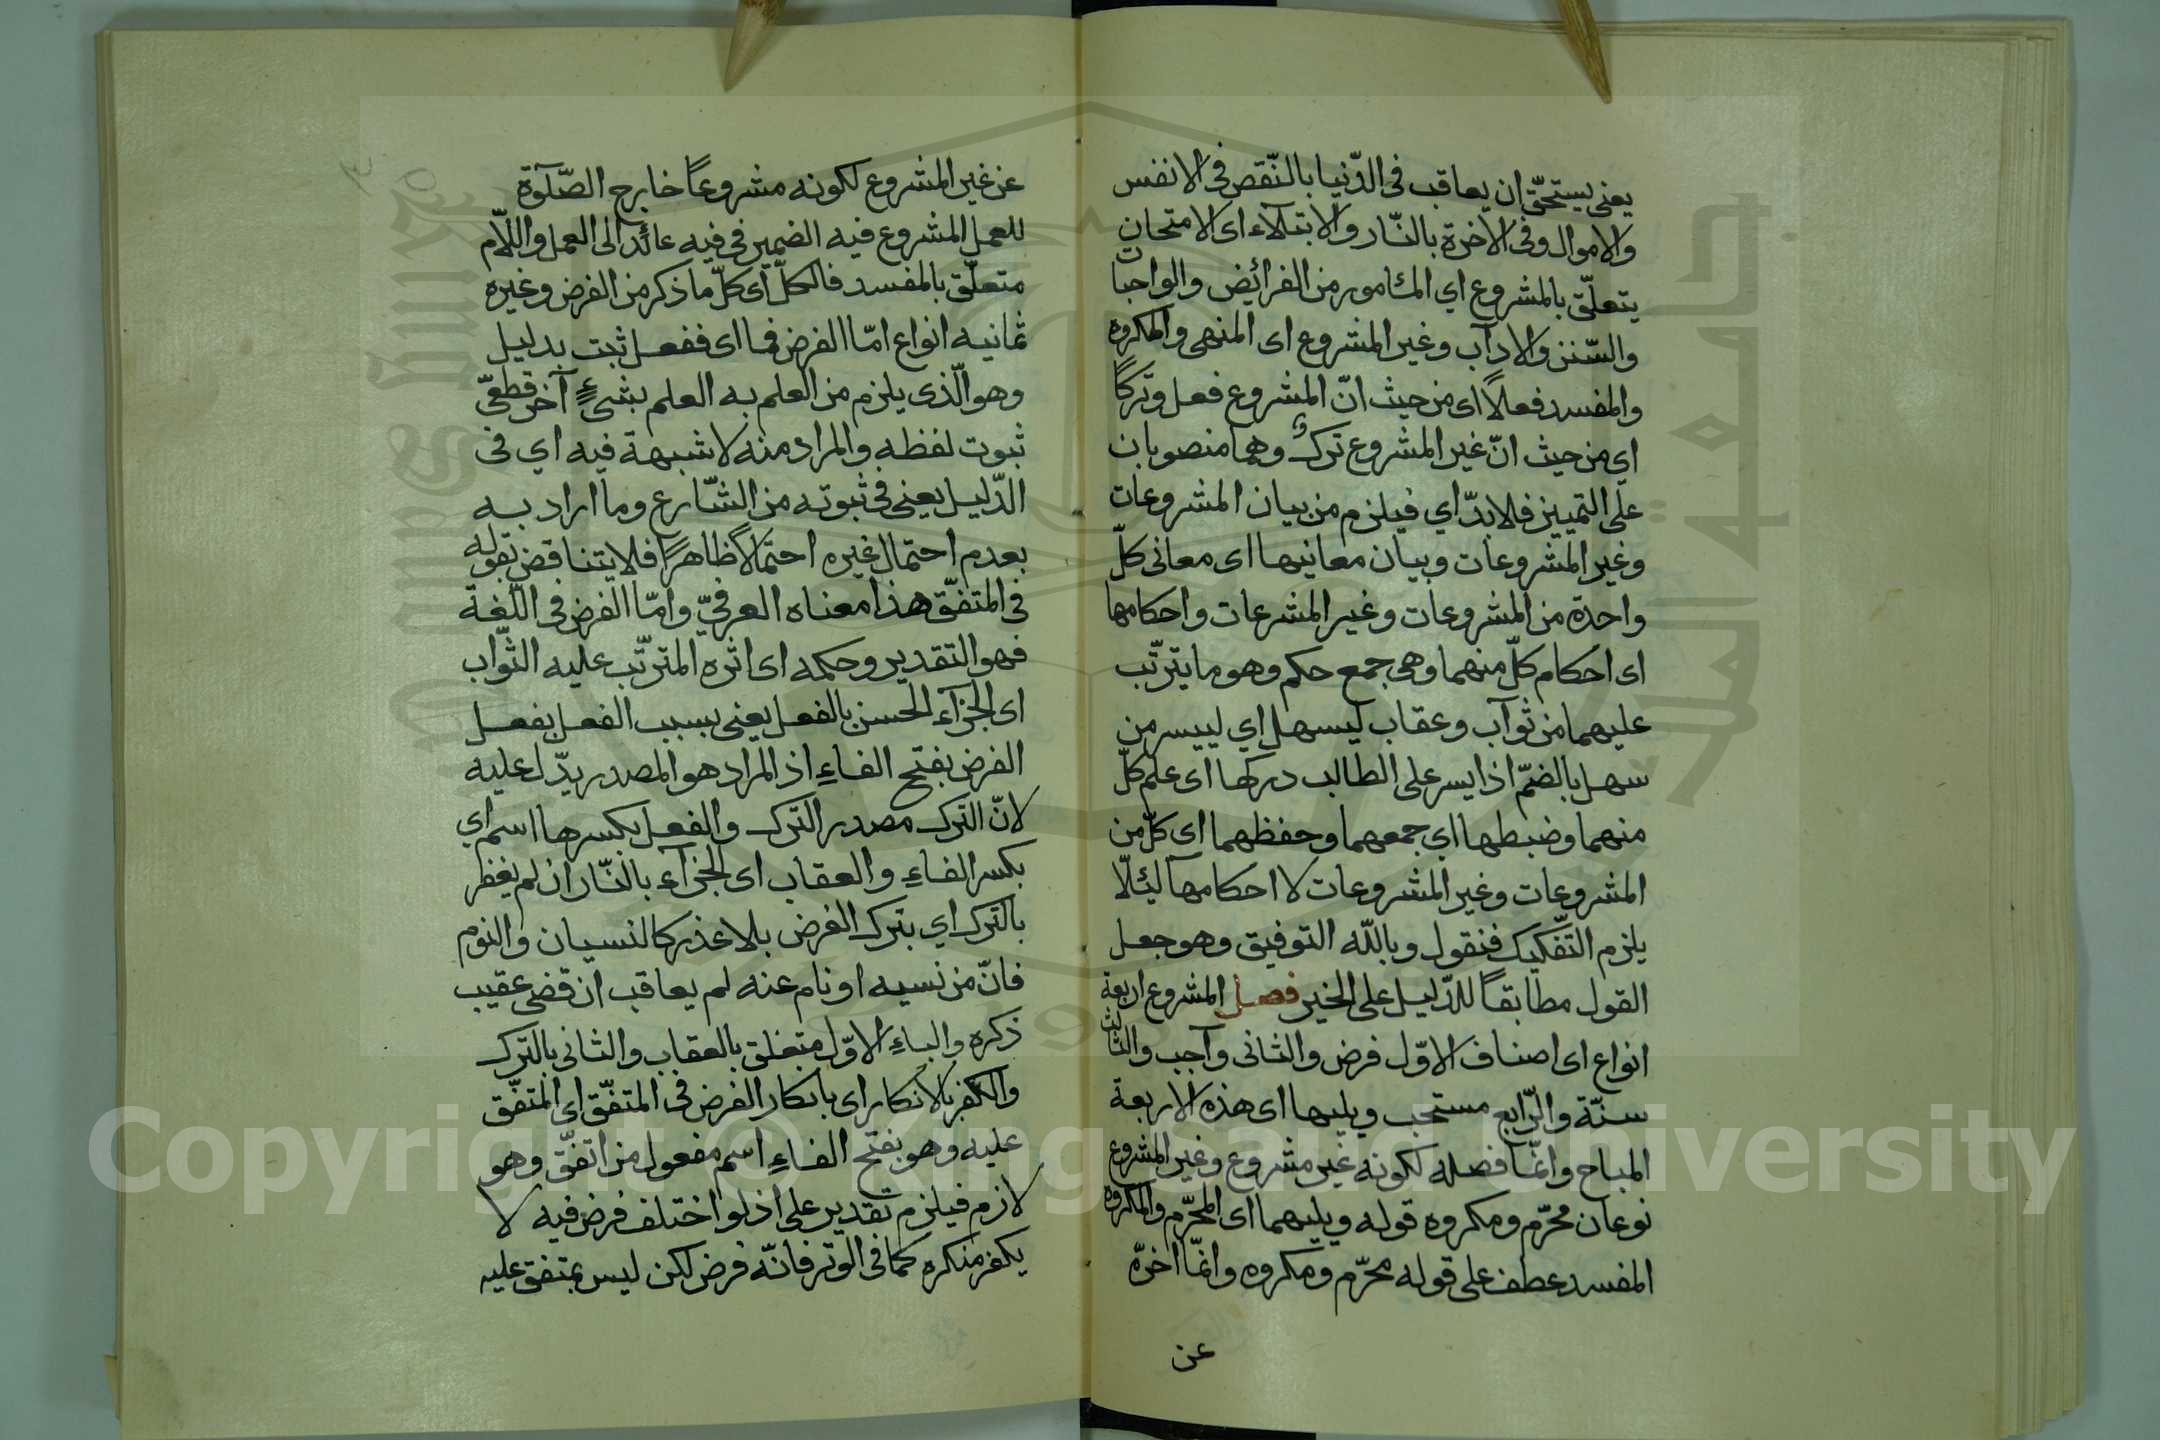 يعنى يستحقّ ان يعاقب فى الدّنيا بالنّقص فى الانفس
والاموال وفى الاخرة بالنّار والابتلآء اى الامتحان
يتعلّق بالمشروع اي المأمور من الفرائض والواجبات
والسّنن والادآب وغير المشروع اى المنهى والمكروه
والمفسد فعلاً اى من حيث انّ المشروع فعل وتركاً
اى من حيث انّ غير المشروع ترك وهما منصوبان
على التمييز فلا بدّ اي فيلزم من بيان المشروعات
وغير المشروعات وبيان معانيها اى معانى كلّ
واحدة من المشروعات وغير المشرعات واحكامها
اى احكام كلّ منهما وهى جمع حكم وهو ما يترتّب
عليهما من ثوآب وعقاب ليسهل اي لييسر من
سهل بالضمّ اذا يسر على الطالب دركها اى علم كلّ
منهما وضبطها اي جمعهما وحفظهما اى كلّ من
المشروعات وغير المشروعات لا احكامهآ لئلّا
يلزم التّفكيك فنقول وباللّه التوفيق وهو جعل
القول مطابقاً للدّليل على الخير فصل المشروع اربعة
انواع اى اصناف الاوّل فرض والثانى وآجب والثالث
سنّة والرّابع مستحب ويليها اى هذه الاربعة
المباح وانّما فصله لكونه غير مشروع وغير المشروع
نوعان محرّم ومكروه قوله ويليهما اى المحرّم والمكروه
المفسد عطف على قوله محرّم ومكروه وانّما اخرّه
عن
عن غير المشروع لكونه مشروعاً خارج الصّلوٓة
للعمل المشروع فيه الضمير فى فيه عائد الى العمل واللّام
متعلّق بالمفسد فالكلّ اى كلّ ما ذكر من الفرض وغيره
ثمانيه انواع امّا الفرض فما اى ففعل ثبت بدليل
وهو الّذى يلزم من العلم به العلم بشىءٍ آخر قطعىّ
ثبوت لفظه والمراد منه لا شبهة فيه اي فى
الدّليل يعنى فى ثبوته من الشّارع وما اراد به
بعدم احتمال غيره احتمالاً ظاهراً فلا يتناقض بقوله
فى المتفّق هذا معناه العرفيّ وامّا الفرض فى اللّغة
فهو التقدير وحكمه اى اثره المترتّب عليه الثّواب
اى الجزآء الحسن بالفعل يعنى بسبب الفعل بفعل
الفرض بفتح الفاءِ اذ المراد هو المصدر يدّل عليه
لانّ الترك مصدر الترك والفعل بكسرها اسم اي
بكسر الفاءِ والعقاب اى الجزآء بالنّار ان لم يغفر
بالترك اي بترك الفرض بلا عذر كالنسيان والنوم
فانّ من نسيه او نام عنه لم يعاقب ان قضى عقيب
ذكره والباءِ الاوّل متعلق بالعقاب والثانى بالترك
والكفر بالانكار اى بانكار الفرض فى المتفّق اى المتفّق
عليه وهو بفتح الفاءِ اسم مفعول من اتفّق وهو
لازم فيلزم تقدير على اذ لو اختلف فرض فيه لا
يكفر منكره كما فى الوتر فانّه فرض لكن ليس بمتفق عليه
Copyright © King Saud University